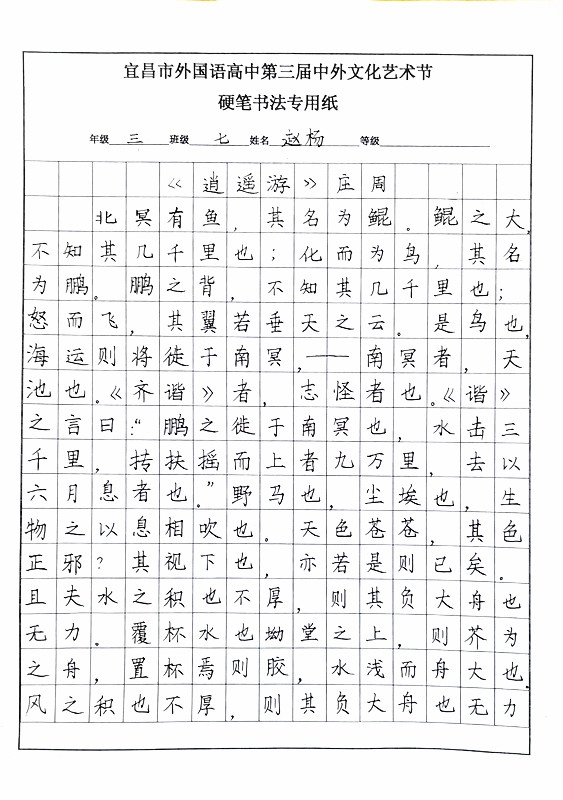 宜昌市外国语高中第三届中外文化艺术节
硬笔书法专用纸
年级 三 班级 七 姓名 赵杨 等级
《逍遥游》庄周
北冥有鱼，其名为鲲。鲲之大，
不知其几千里也；化而为鸟，其名
为鹏。鹏之背，不知其几千里也；
怒而飞，其翼若垂天之云。是鸟也，
海运则将徒于南冥，——南冥者，天
池也。《齐谐》者，志怪者也。《谐》
之言曰：“鹏之徙于南冥也，水击三
千里，抟扶摇而上者九万里，去以
六月息者也。”野马也，尘埃也，生
物之以息相吹也。天色苍苍，其色
正邪？其视下也，亦若是则已矣。
且夫水之积也不厚，则其负大舟也
无力。覆杯水也坳堂之上，则芥为
之舟，置杯焉则胶，水浅而舟大也。
风之积也不厚，则其负大舟也无力